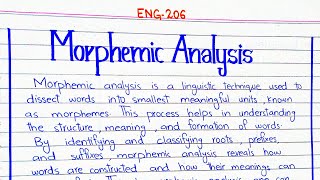 ENG-206
Morphemic Analysis
Morphemic analysis is a linguistic technique used to
dissect words into smallest meaningful units, known
as morphemes. This process helps in understanding
the structure, meaning, and formation of words.
By identifying and classifying roots, prefixes,
and suffixes, morphemic analysis reveals how
words are constructed and how their meanings can